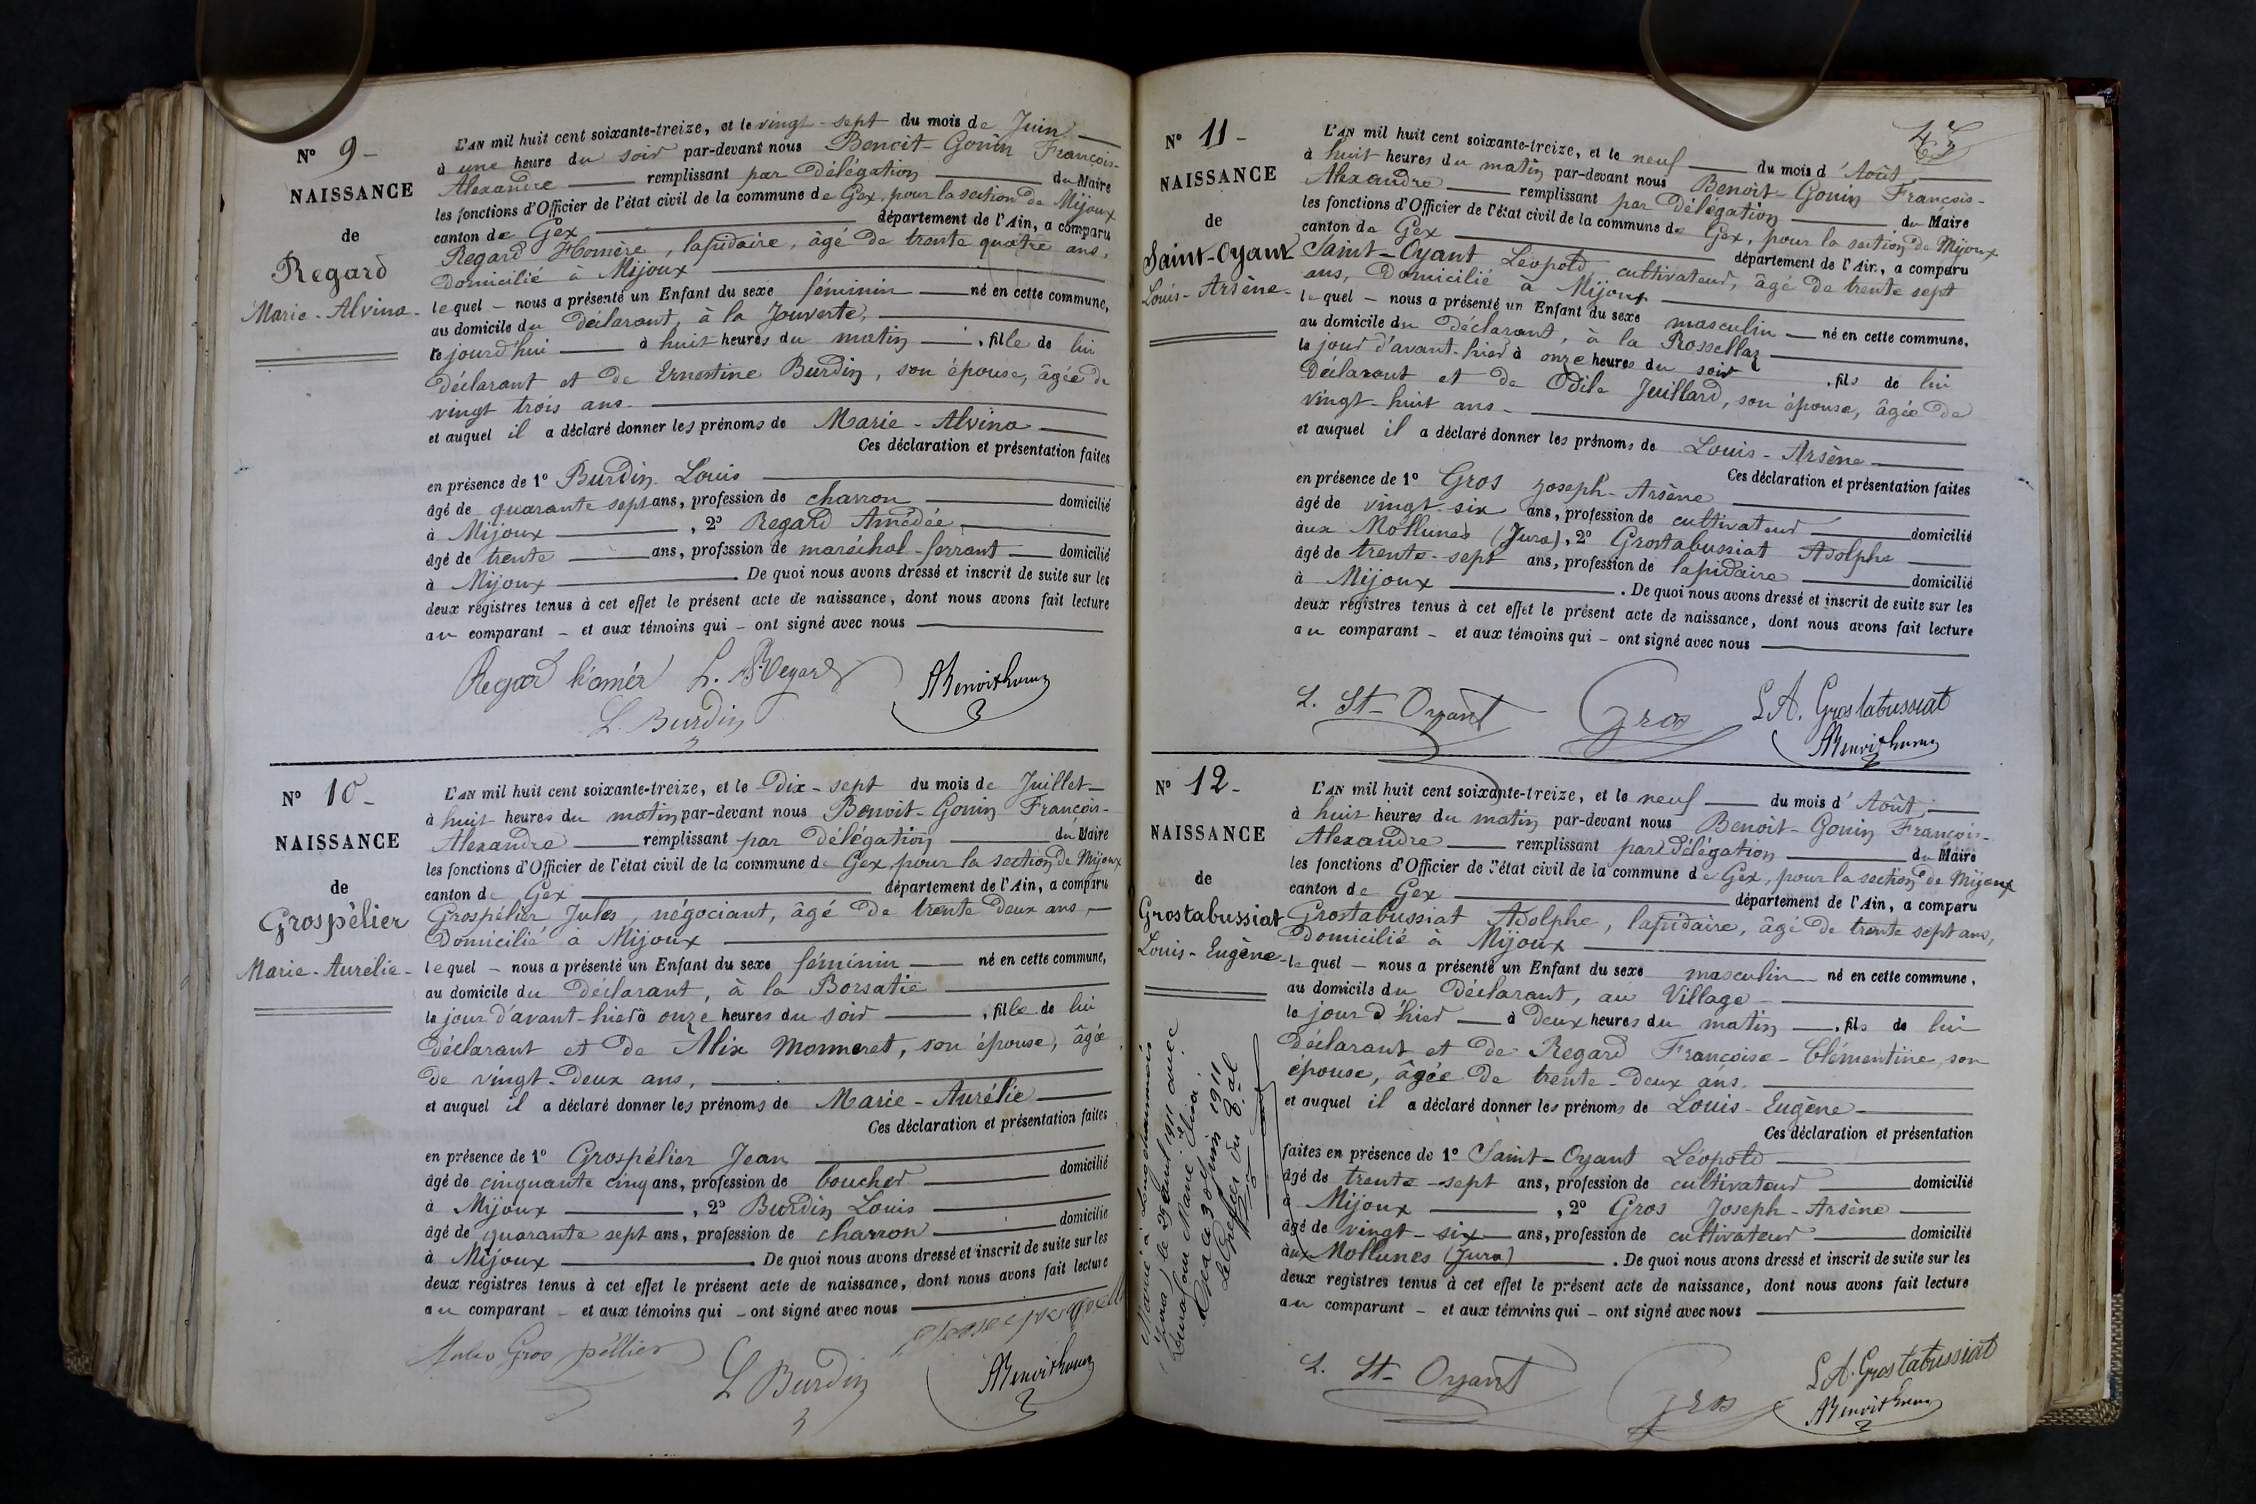 N° 9 -
NAISSANCE
de
Regard
Marie-Alvina -
L'AN mil huit cent soixante-treize, et le vingt-sept du mois de Juin
à une heure du soir par-devant nous Benoit-Gonin François-
Alexandre remplissant par délégation du Maire
les fonctions d'Officier de l'état civil de la commune de Gex, pour la section de Mijoux
canton de Gex département de l'Ain, a comparu
Regard Homère, lapidaire, âgé de trente quatre ans,
domicilié à Mijoux
lequel - nous a présenté un Enfant du sexe féminin né en cette commune,
au domicile du déclarant, à la Jouverte,
le jourd'hui à huit heures du matin, fille de lui
déclarant et de Ernestine Burdin, son épouse, âgée de
vingt trois ans.
et auquel il a déclaré donner les prénoms de Marie-Alvina
Ces déclaration et présentation faites
en présence de 1° Burdin Louis
âgé de quarante sept ans, profession de charron domicilié
à Mijoux, 2° Regard Amédée
âgé de trente ans, profession de maréchal-ferrant domicilié
à Mijoux. De quoi nous avons dressé et inscrit de suite sur les
deux registres tenus à cet effet le présent acte de naissance, dont nous avons fait lecture
au comparant - et aux témoins qui - ont signé avec nous
Regard homér
L. Burdin
N° 10 -
NAISSANCE
de
Grospélier
Marie-Aurélie -
L'AN mil huit cent soixante-treize, et le Dix-sept du mois de Juillet
à huit heures du matin par-devant nous Benoit-Gonin François-
Alexandre remplissant par délégation du Maire
les fonctions d'Officier de l'état civil de la commune de Gex, pour la section de Mijoux
canton de Gex département de l'Ain, a comparu
Grospélier Jules, négociant, âgé de trente deux ans,
domicilié à Mijoux
lequel - nous a présenté un Enfant du sexe féminin né en cette commune,
au domicile du déclarant, à la Borsatie
le jour d'avant-hier à onze heures du soir, fille de lui
déclarant et de Alix Monneret, son épouse, âgée
de vingt-deux ans,
et auquel il a déclaré donner les prénoms de Marie-Aurélie
Ces déclaration et présentation faites
en présence de 1° Grospélier Jean
âgé de cinquante cinq ans, profession de boucher domicilié
à Mijoux, 2° Burdin Louis
âgé de quarante sept ans, profession de charron domicilié
à Mijoux. De quoi nous avons dressé et inscrit de suite sur les
deux registres tenus à cet effet le présent acte de naissance, dont nous avons fait lecture
au comparant - et aux témoins qui - ont signé avec nous
Jules Gros péllier
L Burdin
N° 11 -
NAISSANCE
de
Saint-Oyant
Louis-Arsène -
L'AN mil huit cent soixante-treize, et le neuf du mois d'Août
à huit heures du matin par-devant nous Benoit-Gonin François-
Alexandre remplissant par délégation du Maire
les fonctions d'Officier de l'état civil de la commune de Gex, pour la section de Mijoux
canton de Gex département de l'Ain, a comparu
Saint-Oyant Léopold, cultivateur, âgé de trente sept
ans, domicilié à Mijoux
lequel - nous a présenté un Enfant du sexe masculin né en cette commune,
au domicile du déclarant, à la Rossellaz
le jour d'avant-hier à onze heures du soir, fils de lui
déclarant et de Odile Juillard, son épouse, âgée de
vingt-huit ans -
et auquel il a déclaré donner les prénoms de Louis-Arsène
Ces déclaration et présentation faites
en présence de 1° Gros Joseph-Arsène
âgé de vingt-six ans, profession de cultivateur domicilié
aux Mollunes (Jura), 2° Grostabussiat Adolphe
âgé de trente-sept ans, profession de lapidaire domicilié
à Mijoux. De quoi nous avons dressé et inscrit de suite sur les
deux registres tenus à cet effet le présent acte de naissance, dont nous avons fait lecture
au comparant - et aux témoins qui - ont signé avec nous
L. St-Oyant Gros L A. Grostabussiat
N° 12 -
NAISSANCE
de
Grostabussiat
Louis-Eugène -
L'AN mil huit cent soixante-treize, et le neuf du mois d'Août
à huit heures du matin par-devant nous Benoit-Gonin François-
Alexandre remplissant par délégation du Maire
les fonctions d'Officier de l'état civil de la commune de Gex, pour la section de Mijoux
canton de Gex département de l'Ain, a comparu
Grostabussiat Adolphe, lapidaire, âgé de trente sept ans,
domicilié à Mijoux
lequel - nous a présenté un Enfant du sexe masculin né en cette commune,
au domicile du déclarant, au Village
le jour d'hier à deux heures du matin, fils de lui
déclarant et de Regard Françoise-Clémentine, son
épouse, âgée de trente-deux ans.
et auquel il a déclaré donner les prénoms de Louis-Eugène
Ces déclaration et présentation
faites en présence de 1° Saint-Oyant Léopold
âgé de trente-sept ans, profession de cultivateur domicilié
à Mijoux, 2° Gros Joseph-Arsène
âgé de vingt-six ans, profession de cultivateur domicilié
aux Mollunes (Jura). De quoi nous avons dressé et inscrit de suite sur les
deux registres tenus à cet effet le présent acte de naissance, dont nous avons fait lecture
au comparant - et aux témoins qui - ont signé avec nous
L. St-Oyant Gros L A. Grostabussiat
Marié à Longchaumois
Jura, le 29 avril 1911 avec
Marie
Gex ce 30 juin 1911
Le Greffier du